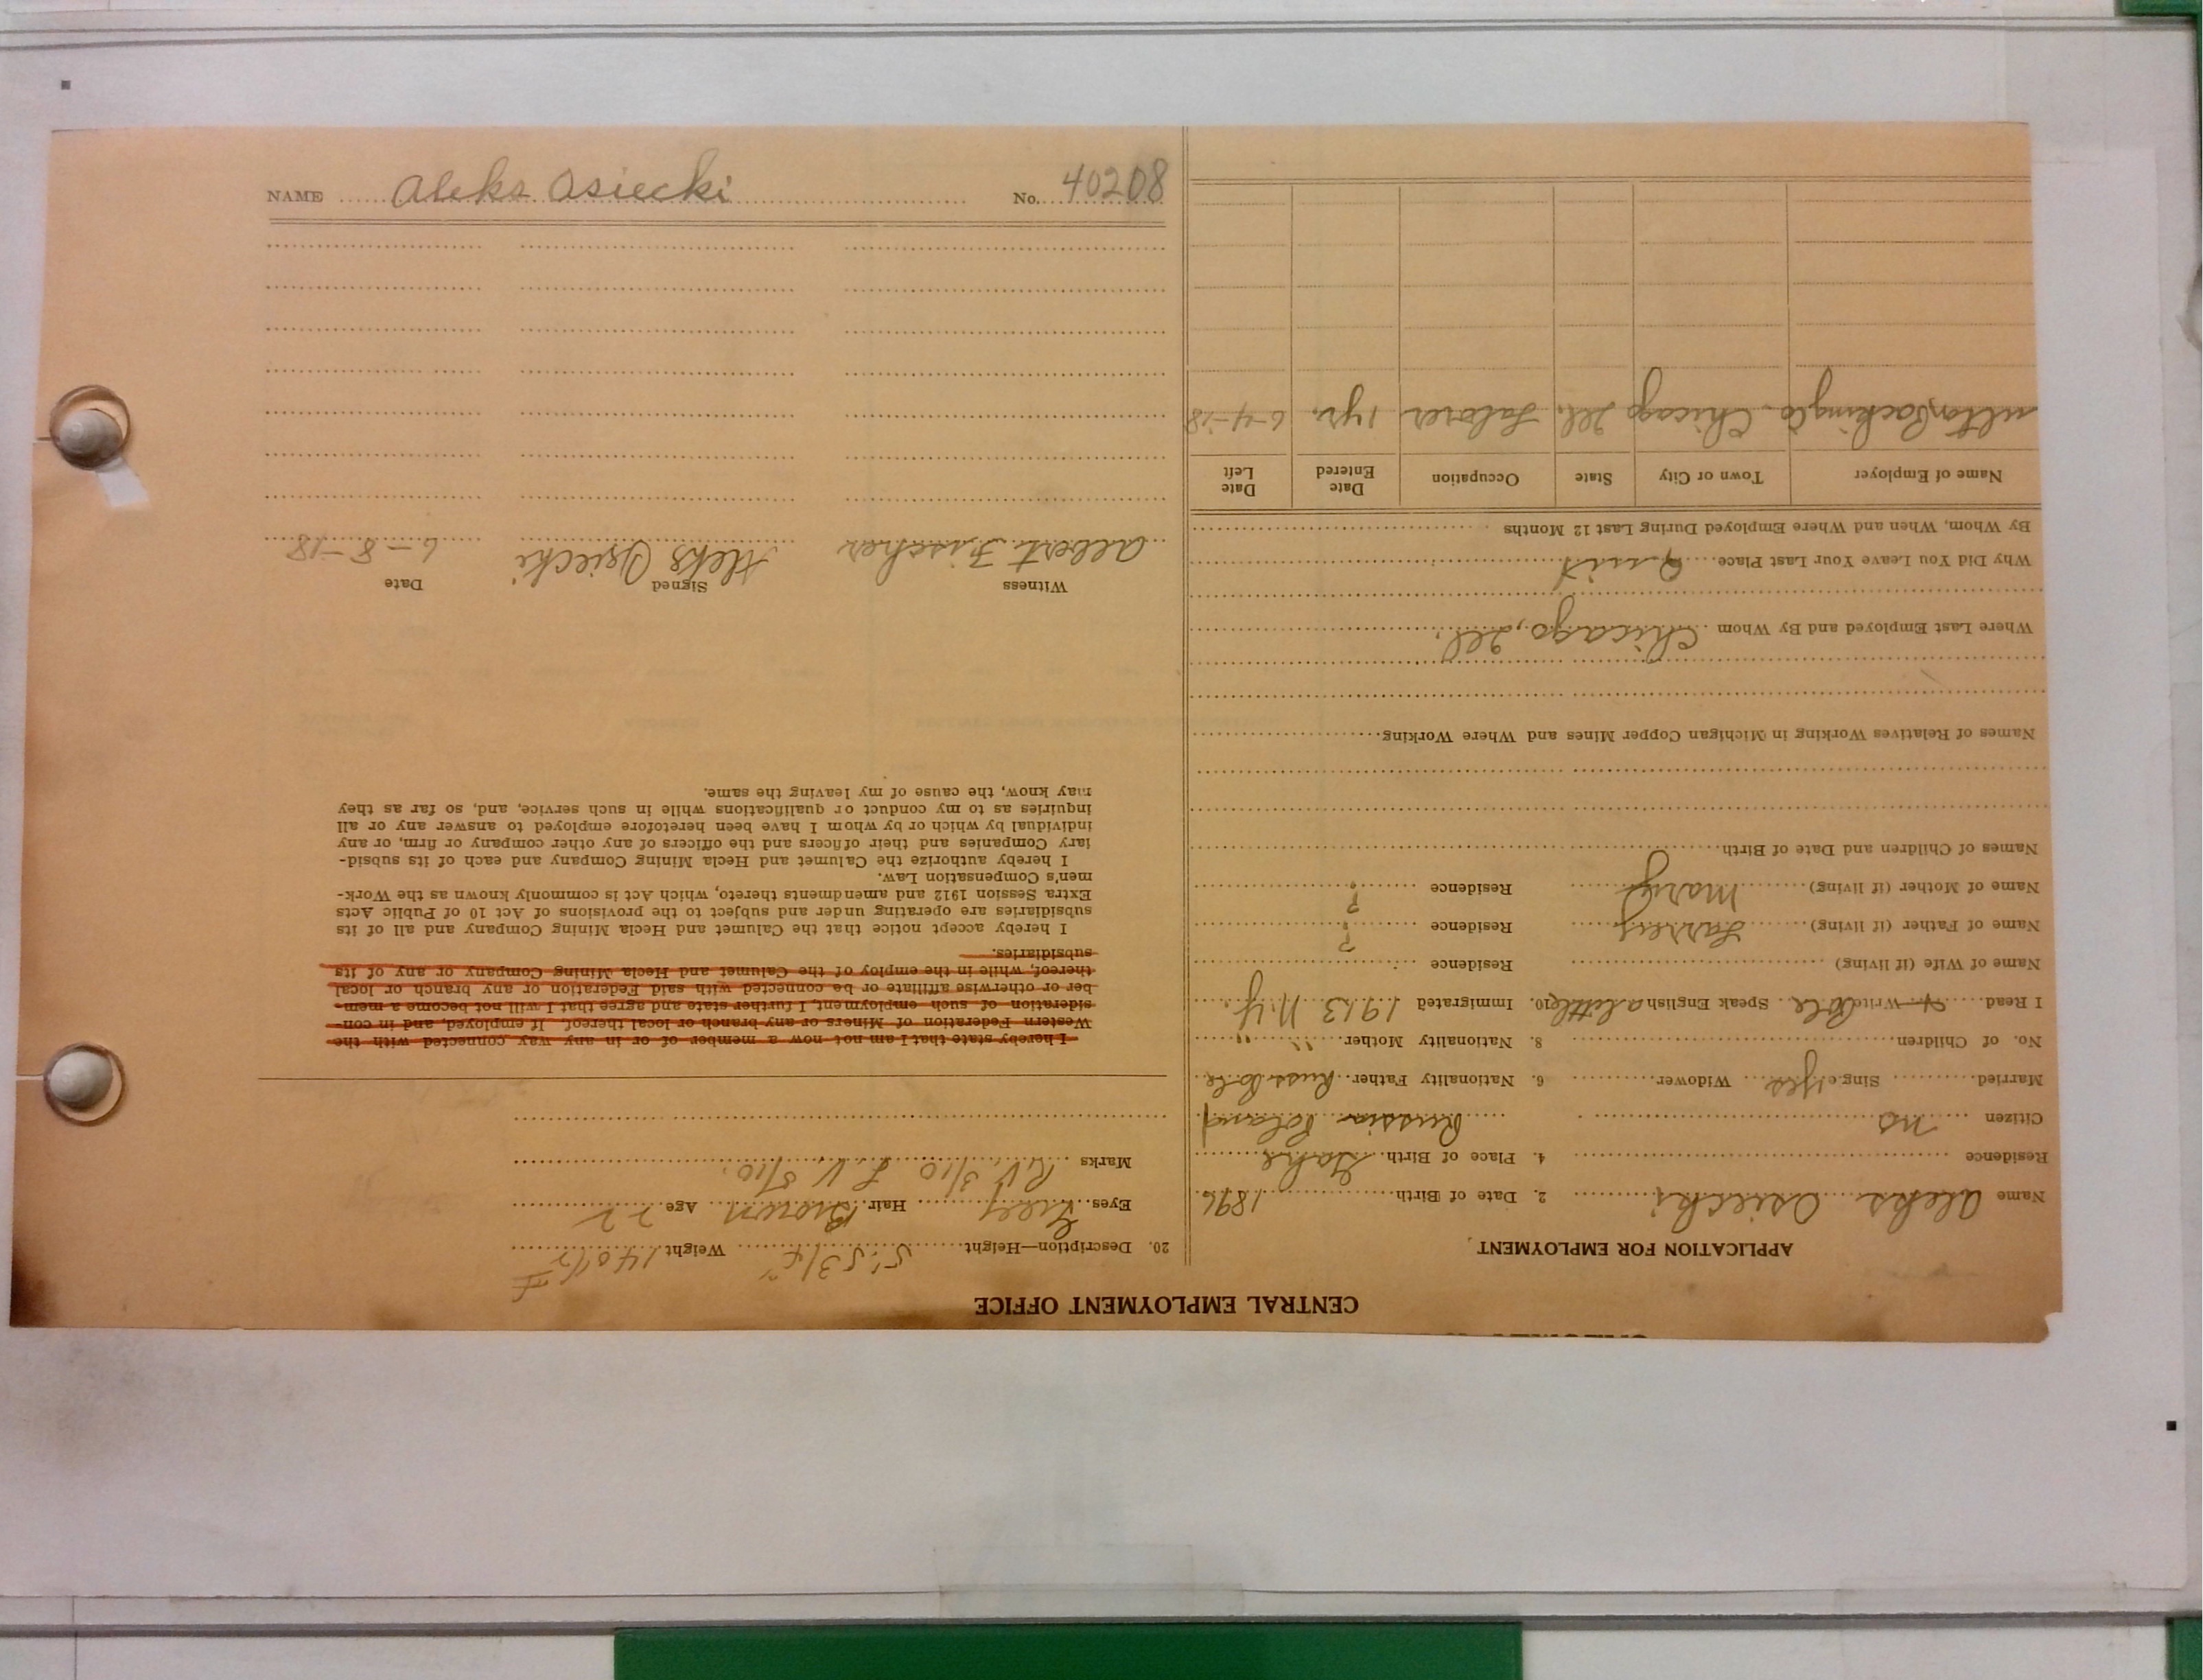 NAME Aleks Osiecki No. 40208
CENTRAL EMPLOYMENT OFFICE
APPLICATION FOR EMPLOYMENT
Name Aleks Osiecki 2. Date of Birth 1896
Residence 4. Place of Birth
Citizen no Russia Poland
Married Single yes Widower 6. Nationality Father Russ Pole
No. of Children 8. Nationality Mother " "
I Read Write Pole Speak English a little 10. Immigrated 1913 N.Y.
Name of Wife (if living) Residence
Name of Father (if living) Residence ?
Name of Mother (if living) Mary Residence ?
Names of Children and Date of Birth
Names of Relatives Working in Michigan Copper Mines and Where Working
Where Last Employed and By Whom Chicago, Ill.
Why Did You Leave Your Last Place Quit
By Whom, When and Where Employed During Last 12 Months
Name of Employer Town or City State Occupation Date Entered Date Left
Packing Co. Chicago Ill. Laborer 1 yr. 6-4-18
20. Description—Height 5' 5 3/4" Weight 140 1/2
Eyes Grey Hair Brown Age 22
Marks R.V. 3/10 L.V. 5/10.
I hereby state that I am not now a member of or in any way connected with the
Western Federation of Miners or any branch or local thereof. If employed, and in con-
sideration of such employment, I further state and agree that I will not become a mem-
ber or otherwise affiliate or be connected with said Federation or any branch or local
thereof, while in the employ of the Calumet and Hecla Mining Company or any of its
subsidiaries.
I hereby accept notice that the Calumet and Hecla Mining Company and all of its
subsidiaries are operating under and subject to the provisions of Act 10 of Public Acts
Extra Session 1912 and amendments thereto, which Act is commonly known as the Work-
men's Compensation Law.
I hereby authorize the Calumet and Hecla Mining Company and each of its subsid-
iary Companies and their officers and the officers of any other company or firm, or any
individual by which or by whom I have been heretofore employed to answer any or all
inquiries as to my conduct or qualifications while in such service, and, so far as they
may know, the cause of my leaving the same.
Witness Signed Date
Albert Fischer Aleks Osiecki 6-8-18